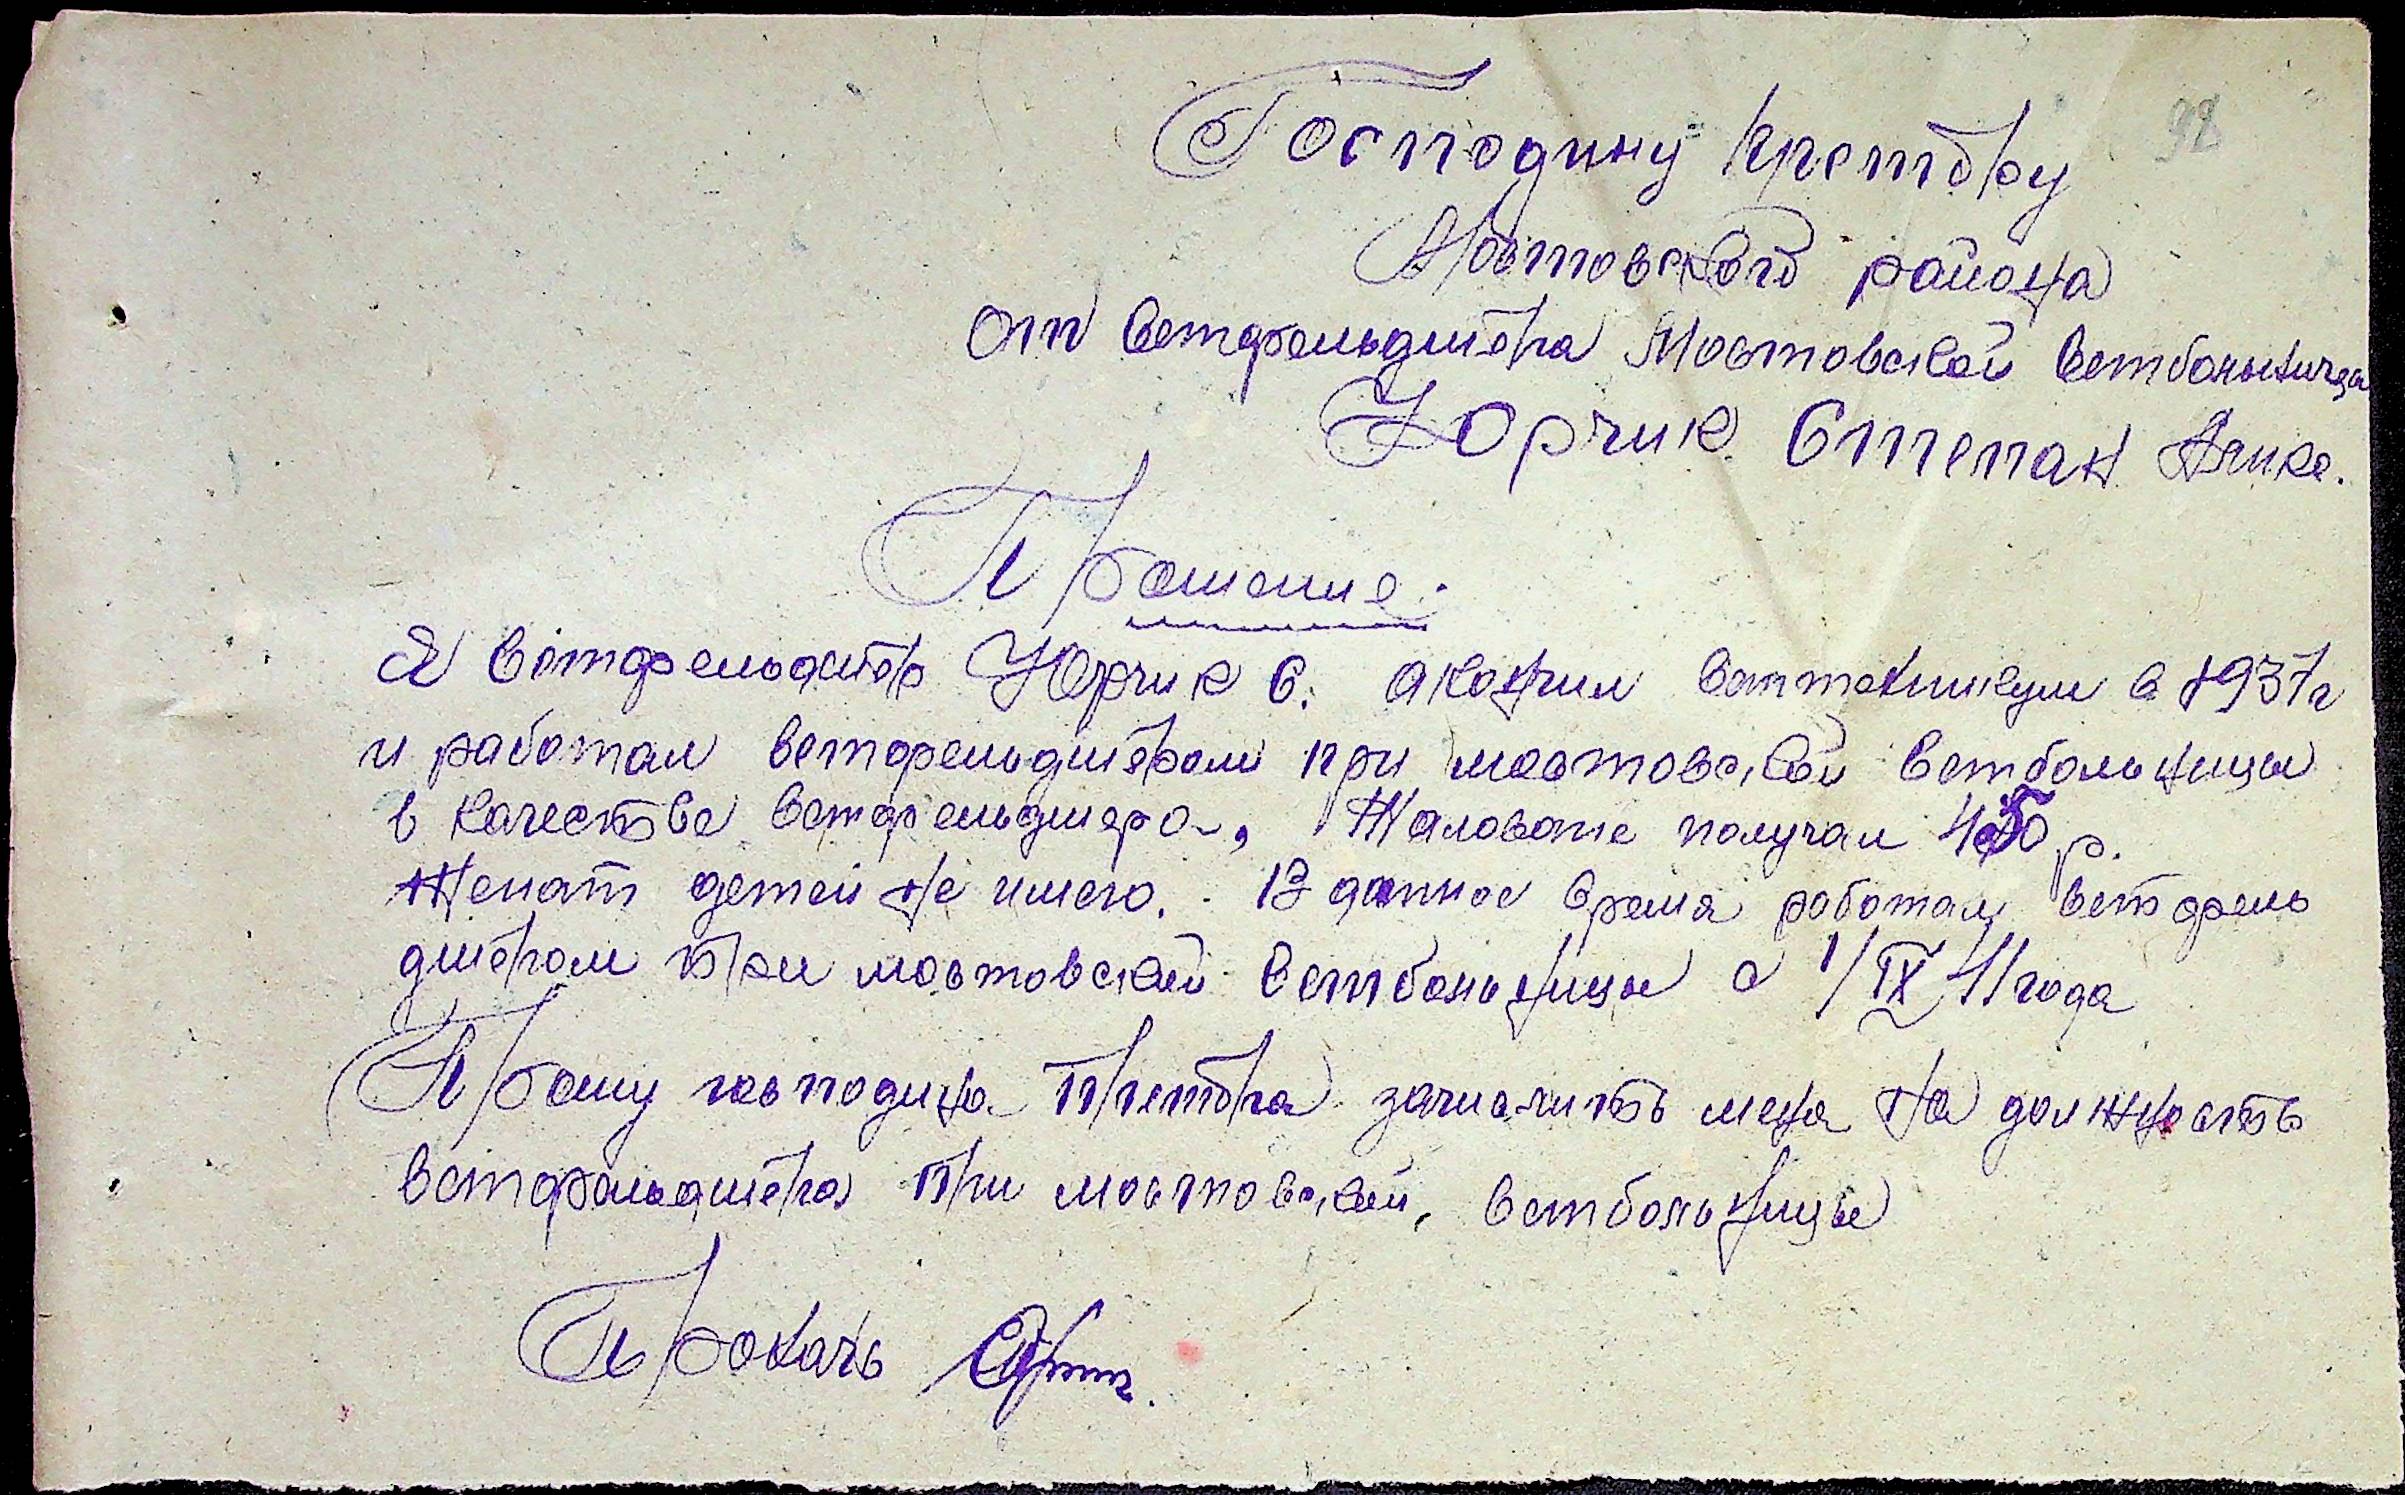 98
Господину Кретбру
Мостовского района
От Ветфельдшера Мостовской Ветбольницы
Юрчик Степан
Прошение.
Я Ветфельдшер Юрчик С. окончил Веттехникум в 1937г
и работал ветфельдшером при мостовской Ветбольницы
в качестве Ветфельдшера, Жалованье получал 450 р.
Женат детей не имею. В данное время работаю ветфель
дшером при мостовской Ветбольницы с 1/IX 41 года
Прошу господина зачислить меня на должность
ветфельдшера при мостовской, ветбольницы